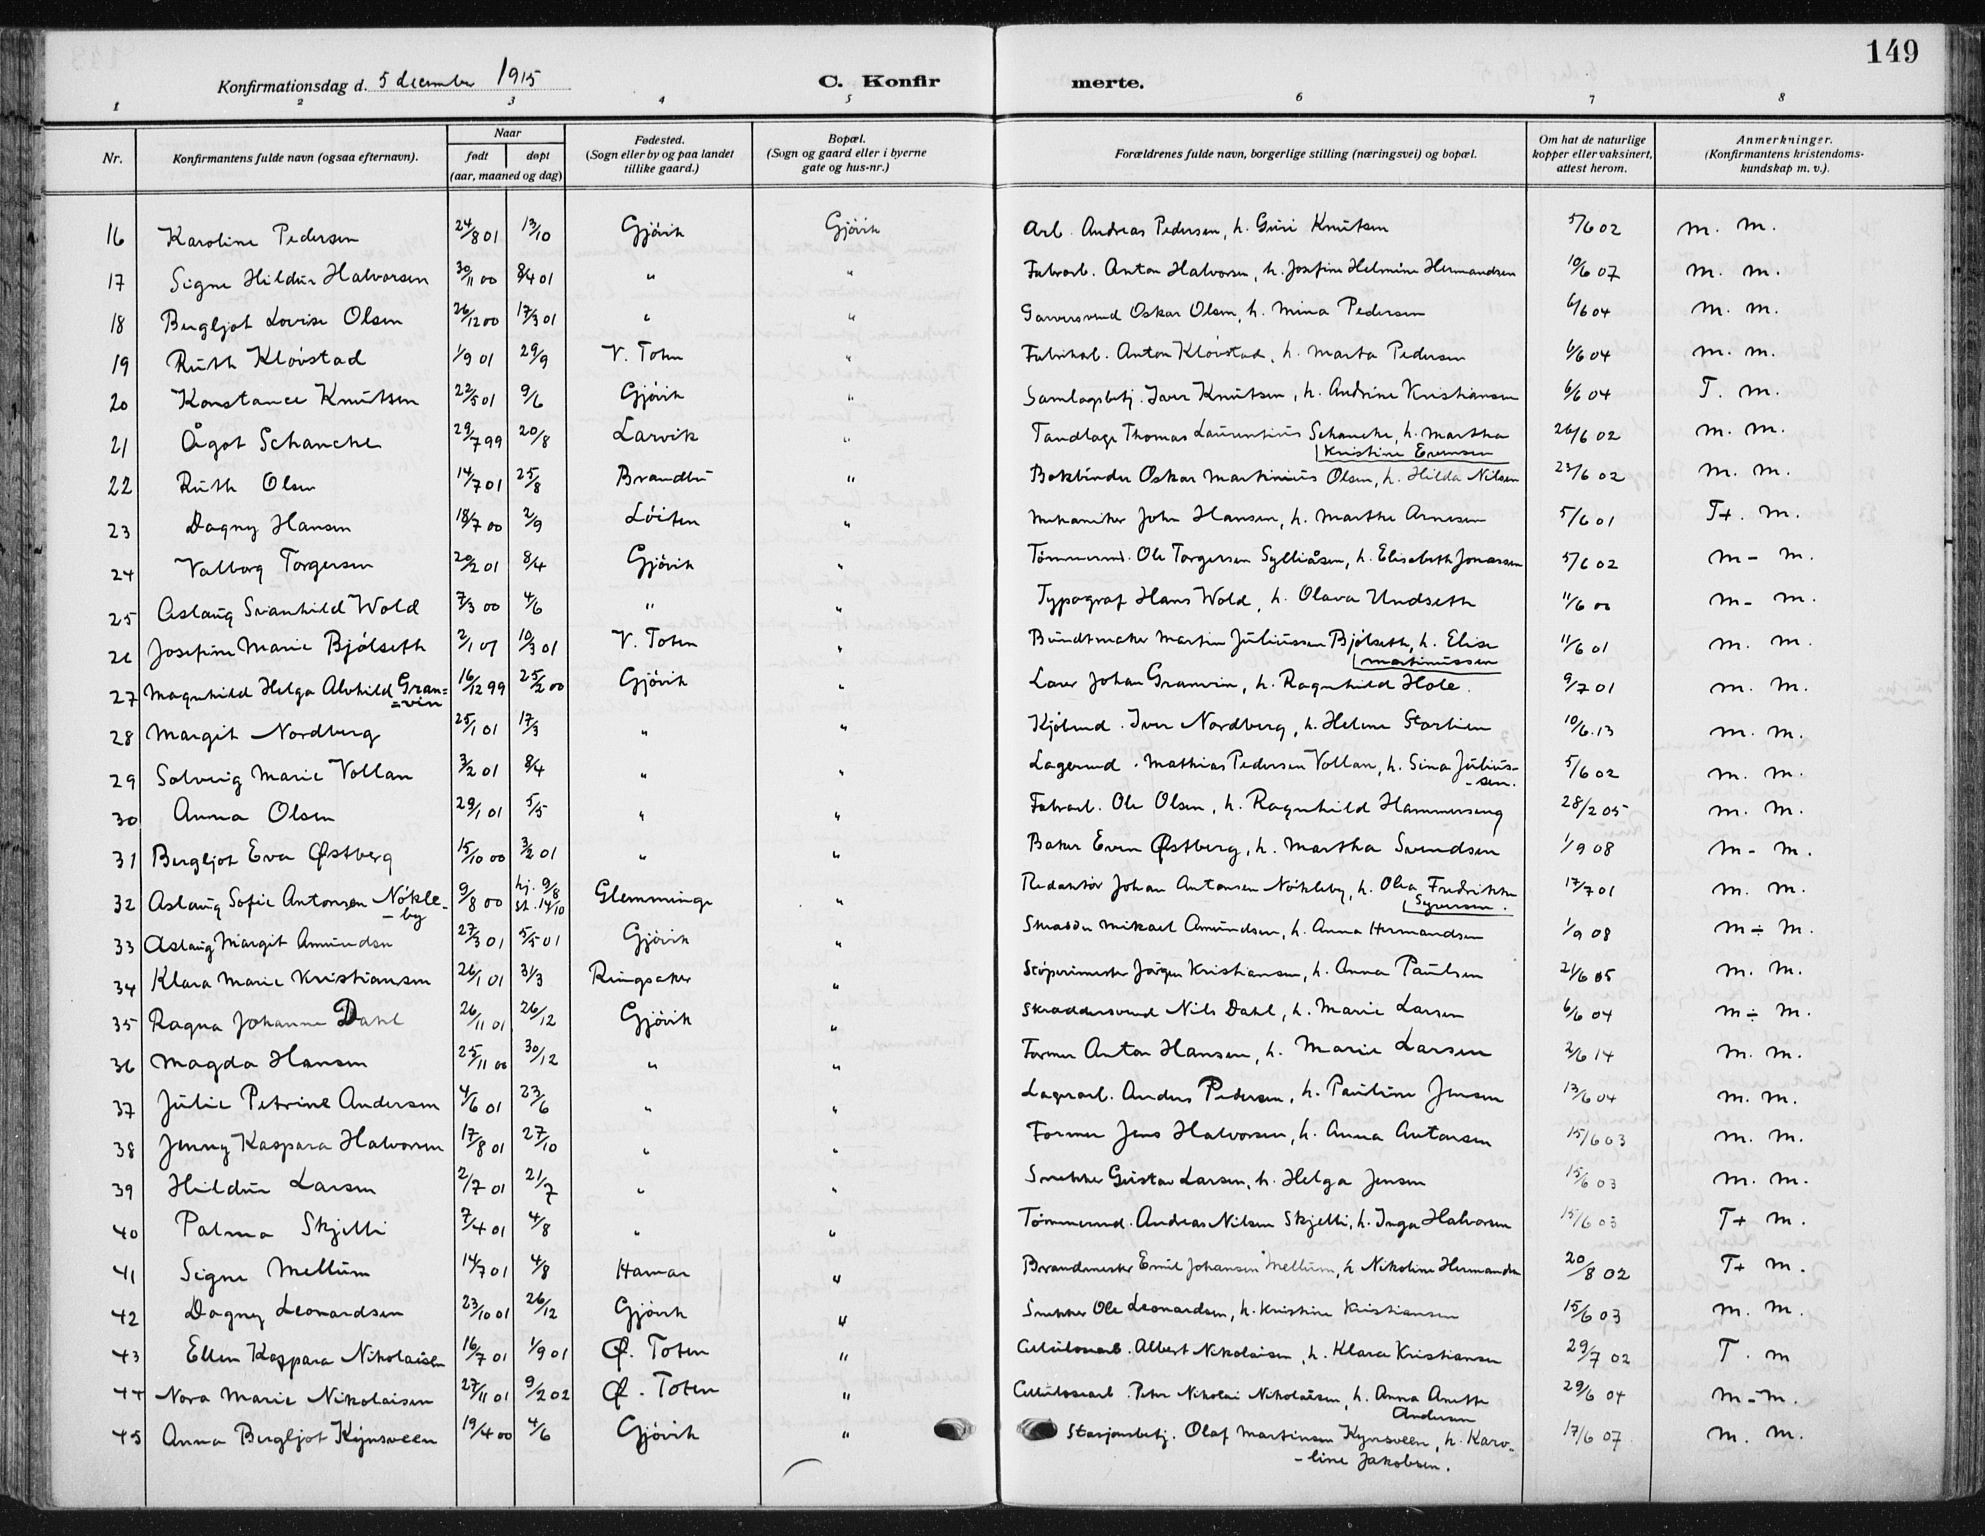 149
Konfirmationsdag d. 5 december 1915 C. Konfir merte.
1 2 3 4 5 6 7 8
Nr. Konfirmantens fulde navn (ogsaa efternavn). Naar født døpt (aar, maaned og dag) Fødested. (Sogn eller by og paa landet tillike gaard.) Bopæl. (Sogn og gaard eller i byerne gate og hus-nr.) Forældrenes fulde navn, borgerlige stilling (næringsvei) og bopæl. Om hat de naturlige kopper eller vaksinert, attest herom. Anmerkninger. (Konfirmantens kristendoms- kundskap m. v.).
16 Karoline Pedersen 24/8 01 13/10 Gjövik Gjövik Arb. Andreas Pedersen, h. Guri Knutsen 5/6 02 m. m.
17 Signe Hildur Halvorsen 30/11 00 8/4 01 " " Fabrarb. Anton Halvorsen, h. Josefine Helmine Hermandsen 10/6 07 m. m.
18 Bergljot Lovise Olsen 26/12 00 17/3 01 " " Garversvend Oskar Olsen, h. Mina Pedersen 6/6 04 m. m.
19 Ruth Klövstad 1/9 01 29/9 V. Toten " Fabrikarb. Anton Klövstad, h. Marta Pedersen 6/6 04 m. m.
20 Konstance Knutsen 22/5 01 9/6 Gjövik " Samlagsbetj. Iver Knutsen, h. Andrine Kristiansen 6/6 04 T. m.
21 Ågot Schanche 29/7 99 20/8 Larvik " Tandlæge Thomas Laurentius Schanche, h. Martha Kristine Evensen 26/6 02 m. m.
22 Ruth Olsen 14/7 01 25/8 Brandbu " Bokbinder Oskar Martinius Olsen, h. Hilda Nilsen 23/6 02 m. m.
23 Dagny Hansen 18/7 00 2/9 Löiten " Mekaniker John Hansen, h. Marthe Arnesen 5/6 01 T+. m.
24 Valborg Torgersen 20/2 01 8/4 Gjövik " Tømmermd. Ole Torgersen Sylliåsen, h. Elisabeth Jonassen 5/6 02 m - m.
25 Aslaug Svanhild Wold 7/3 00 4/6 " " Typograf Hans Wold, h. Olava Undseth 11/6 00 m - m.
26 Josefine Marie Bjölseth 2/1 01 10/3 01 V. Toten " Bundtmaker Martin Juliussen Bjölseth, h. Elise Martinussen 11/6 01 m. m.
27 Magnhild Helga Alvhild Gran= =vin 16/12 99 25/2 00 Gjövik " Laver Johan Granvin, h. Ragnhild Hole. 9/7 01 m. m.
28 Margit Nordberg 25/1 01 17/3 " " Kjöbmd. Iver Nordberg, h. Helene Starlien 10/6.13 m. m.
29 Solveig Marie Vollan 3/2 01 8/4 " " Lagermd. Mathias Pedersen Vollan, h. Sina Julius- -sen. 5/6 02 m. m.
30 Anna Olsen 29/1 01 5/5 " " Fabrarb. Ole Olsen, h. Ragnhild Hammerseng 28/2 05 m. m.
31 Bergljot Eva Østberg 15/10 00 3/2 01 " " Baker Even Østberg, h. Martha Svendsen 1/9 08 m - m.
32 Aslaug Sofie Antonsen Nökle- -by 9/8 00 hj. 9/8 st. 14/10 Glemminge " Redaktör Johan Antonsen Nökleby, h. Olea Fredrikke Syversen. 17/7 01 m. m.
33 Aslaug Margit Amundsen 27/3 01 5/5 01 Gjövik " Skrædder Mikael Amundsen, h. Anna Hermandsen 1/9 08 m ÷ m.
34 Klara Marie Kristiansen 26/1 01 31/3 Ringsaker " Stöperimester Jörgen Kristiansen, h. Anna Paulsen 21/6 05 m. m.
35 Ragna Johanne Dahl 26/11 01 26/12 Gjövik " Skræddersvend Nils Dahl, h. Marie Larsen 6/6 04 m ÷ m.
36 Magda Hansen 25/11 00 30/12 " " Former Anton Hansen, h. Marie Larsen 2/6 14 m. m.
37 Julie Petrine Andersen 4/6 01 23/6 " " Lagerarb. Anders Pedersen, h. Pauline Jensen 13/6 04 m. m.
38 Jenny Kaspara Halvorsen 17/8 01 27/10 " " Former Jens Halvorsen, h. Anna Antonsen 15/6 03 m. m.
39 Hildur Larsen 2/7 01 21/7 " " Snekker Gustav Larsen, h. Helga Jensen 15/6 03 m. m.
40 Palma Skjelli 7/4 01 4/8 " " Tømmermd. Andreas Nilsen Skjelli, h. Inga Halvorsen 15/6 03 T+ m.
41 Signe Mellum 14/7 01 4/8 Hamar " Brandmester Emil Johansen Mellum, h Nikoline Hermandsen 20/8 02 T+ m.
42 Dagny Leonardsen 23/10 01 26/12 Gjövik " Snekker Ole Leonardsen, h. Kristine Kristiansen 15/6 03 m. m.
43 Ellen Kaspara Nikolaisen 16/7 01 1/9 01 Ø. Toten " Cellulosearb. Albert Nikolaisen, h. Klara Kristiansen 29/7 02 T. m
44 Nora Marie Nikolaisen 27/11 01 9/2 02 Ø. Toten " Cellulosearb. Peter Nikolai Nikolaisen, h. Anna Anette Andersen 29/6 04 m - m.
45 Anna Bergljot Kynsveen 19/4 00 4/6 Gjövik " Stasjonsbetj. Olaf Martinsen Kynsveen, h. Karo- -line Jakobsen. 17/6 07 m. m.